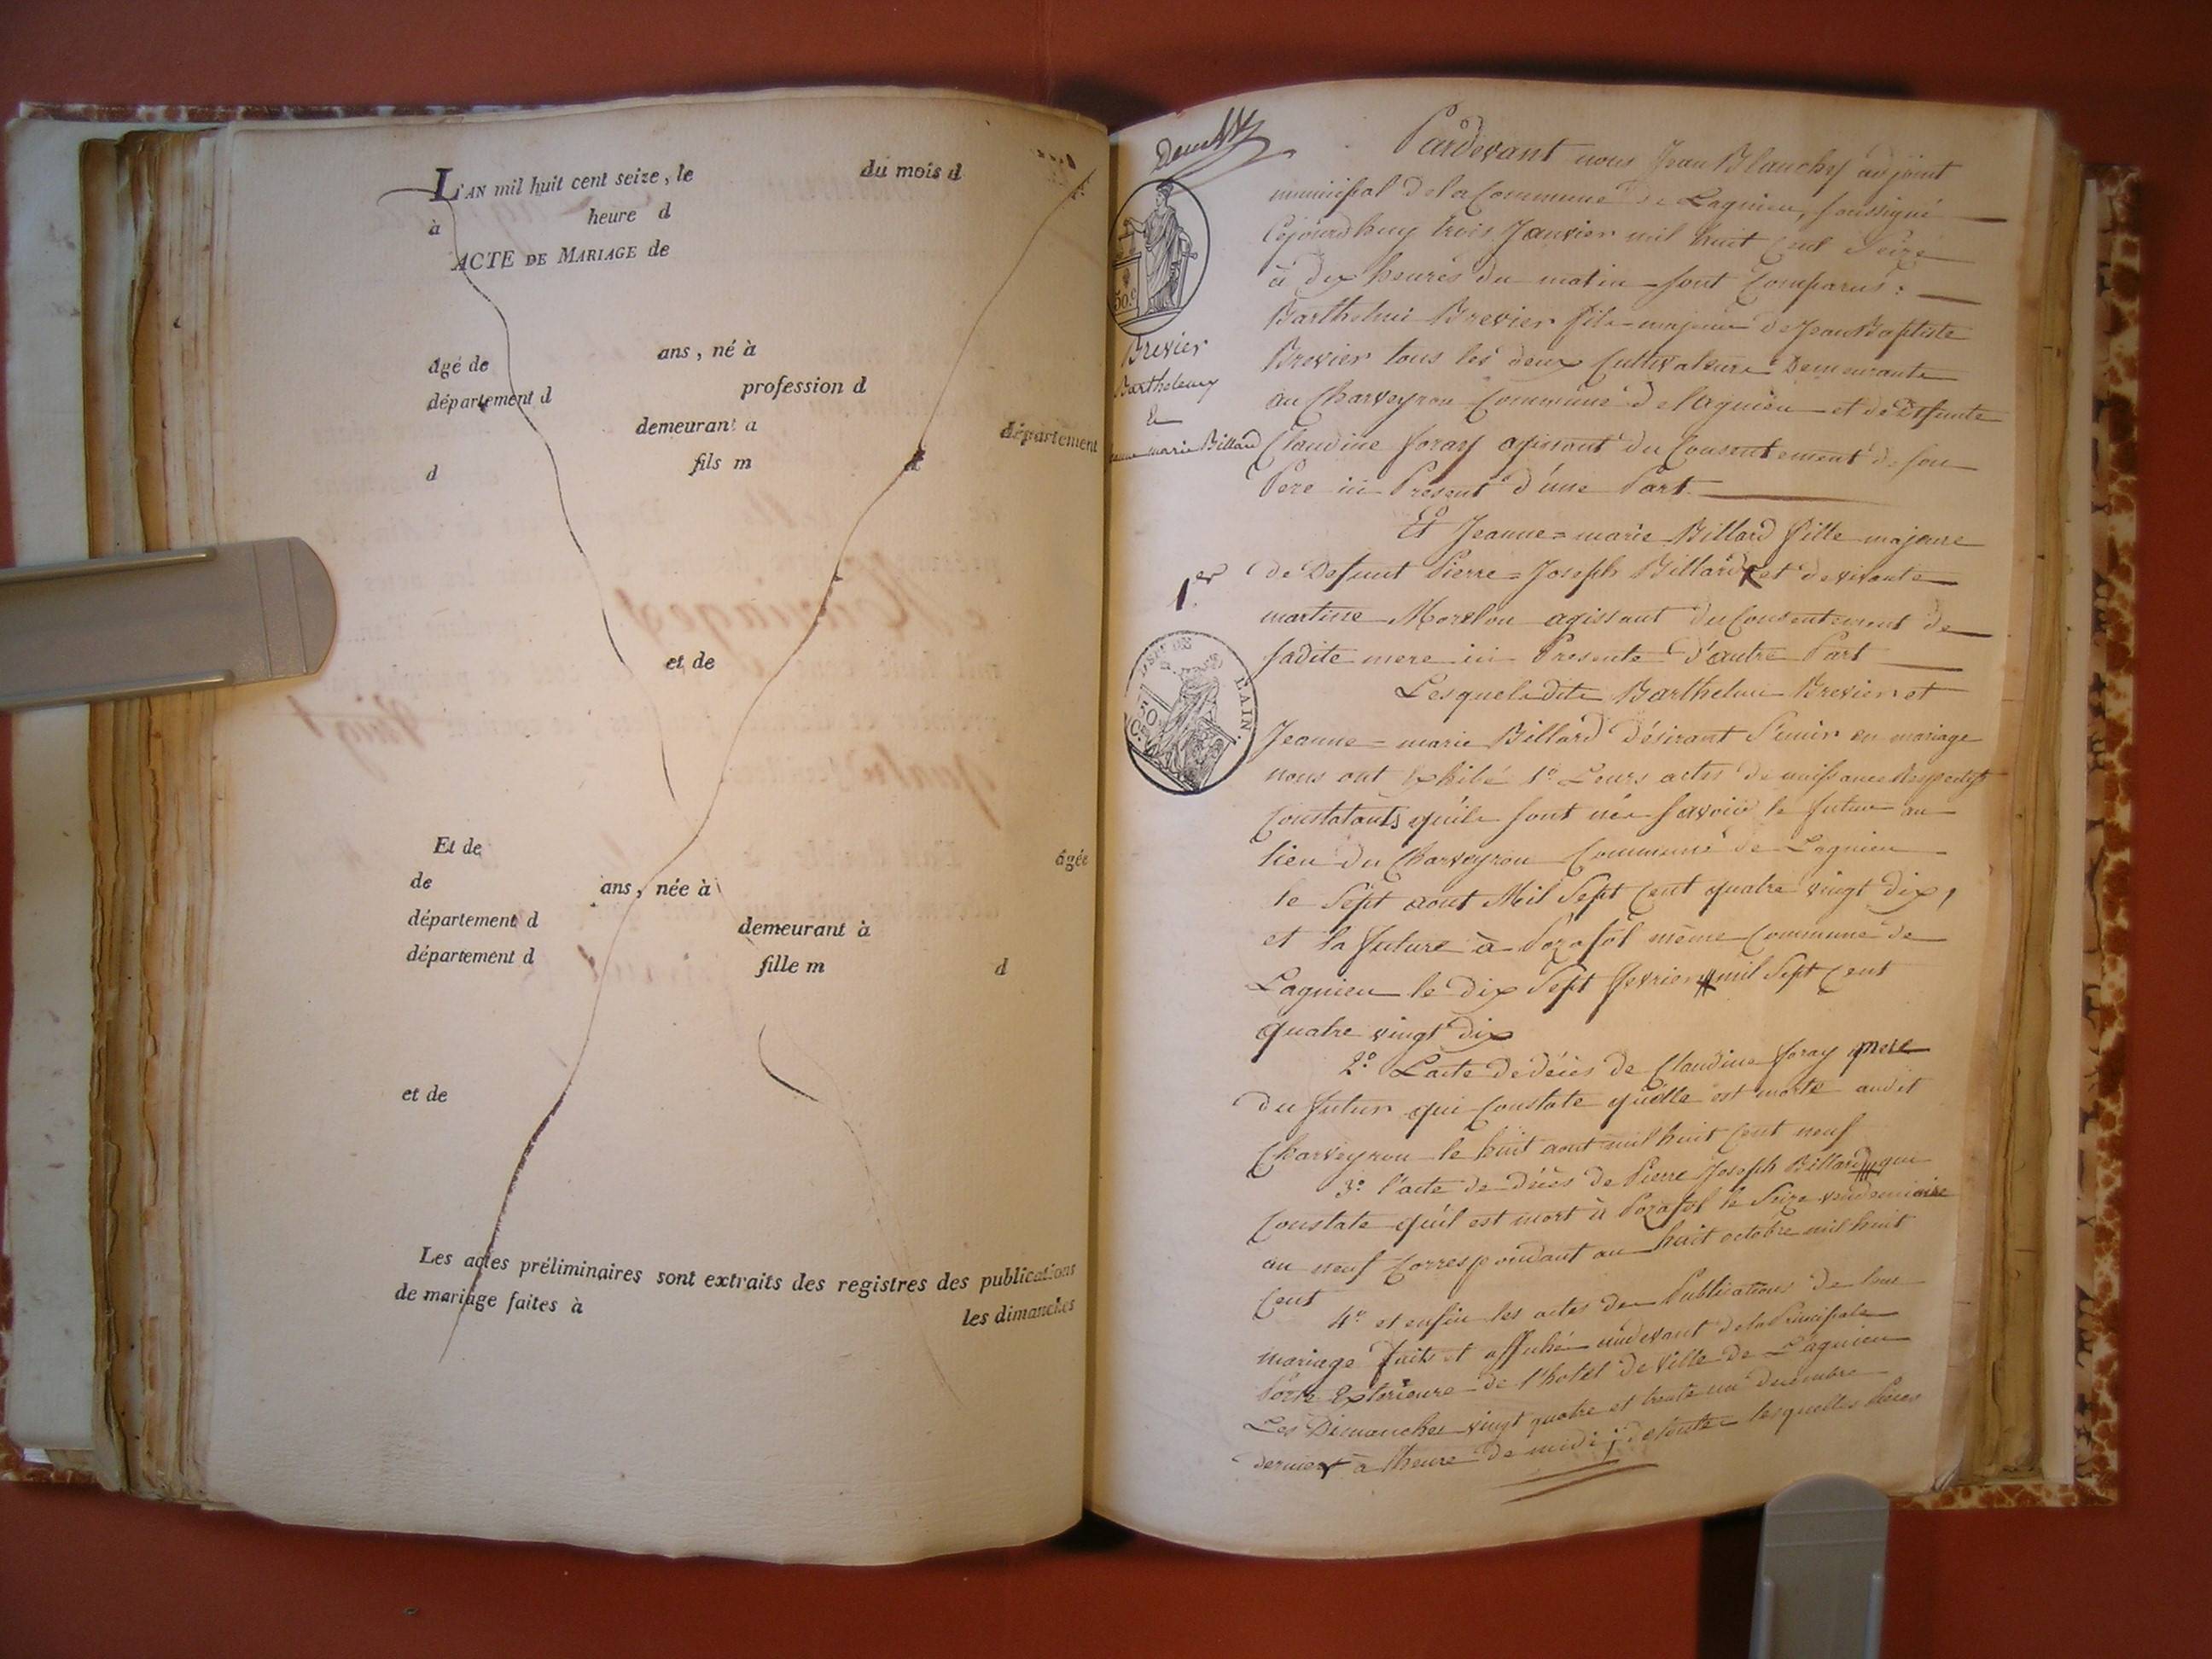 L'AN mil huit cent seize, le du mois d
à heure d
ACTE DE MARIAGE de
âgé de ans, né à
département d profession d
demeurant à département
d fils m d
et de
Et de âgée
de ans, née à
département d demeurant à
département d fille m d
et de
Les actes préliminaires sont extraits des registres des publications
de mariage faites à les dimanches
50.c
Brevier
Barthelemy
&
marie Billard
1.er
DEP. DE L'AIN.
50
C.
Pardevant nous Jean Blanchy adjoint
municipal de la Commune de Lagnieu, soussigné
Cejourdhuy trois Janvier mil huit Cent Seize
à dix heures du matin sont Comparus :
Barthelmi Brevier fils majeur de Jean Baptiste
Brevier tous les deux Cultivateurs Demeurants
au Charveyron Commune de lagnieu et de Défunte
Claudine foray agissant du Consentement de son
Pere ici Présent d'une Part
Et Jeanne=marie Billard fille majeure
de Defunt Pierre=Joseph Billard et de vivante
martine Morelou agissant du Consentement de
sadite mere ici Presente d'autre Part
Lesquels dits Barthelmi Brevier et
Jeanne=marie Billard désirant s'unir en mariage
nous ont Exhibé 1.º Leurs actes de naissance Respectifs
Constatants qu'ils sont nés savoir le futur au
lieu du Charveyron Commune de Lagnieu
le Sept aout Mil Sept Cent quatre vingt dix,
et la future à Pozafol même Commune de
Lagnieu le dix Sept fevrier mil Sept Cent
quatre vingt dix
2.º L'acte de décès de Claudine foray mere
du futur qui Constate qu'elle est morte audit
Charveyron le huit aout mil huit Cent neuf
3.º l'acte de décès de Pierre Joseph Billard qui
Constate qu'il est mort à Pozafol le Seize vendemiaire
an neuf Correspondant au huit octobre mil huit
Cent
4.º et enfin les actes de Publications de leur
mariage faits et affiché audevant de la Principale
Porte Extérieure de l'hotel de Ville de Lagnieu
Les Dimanches vingt quatre et trente un decembre
dernier à l'heure de midi ; de toutes lesquelles Pieces